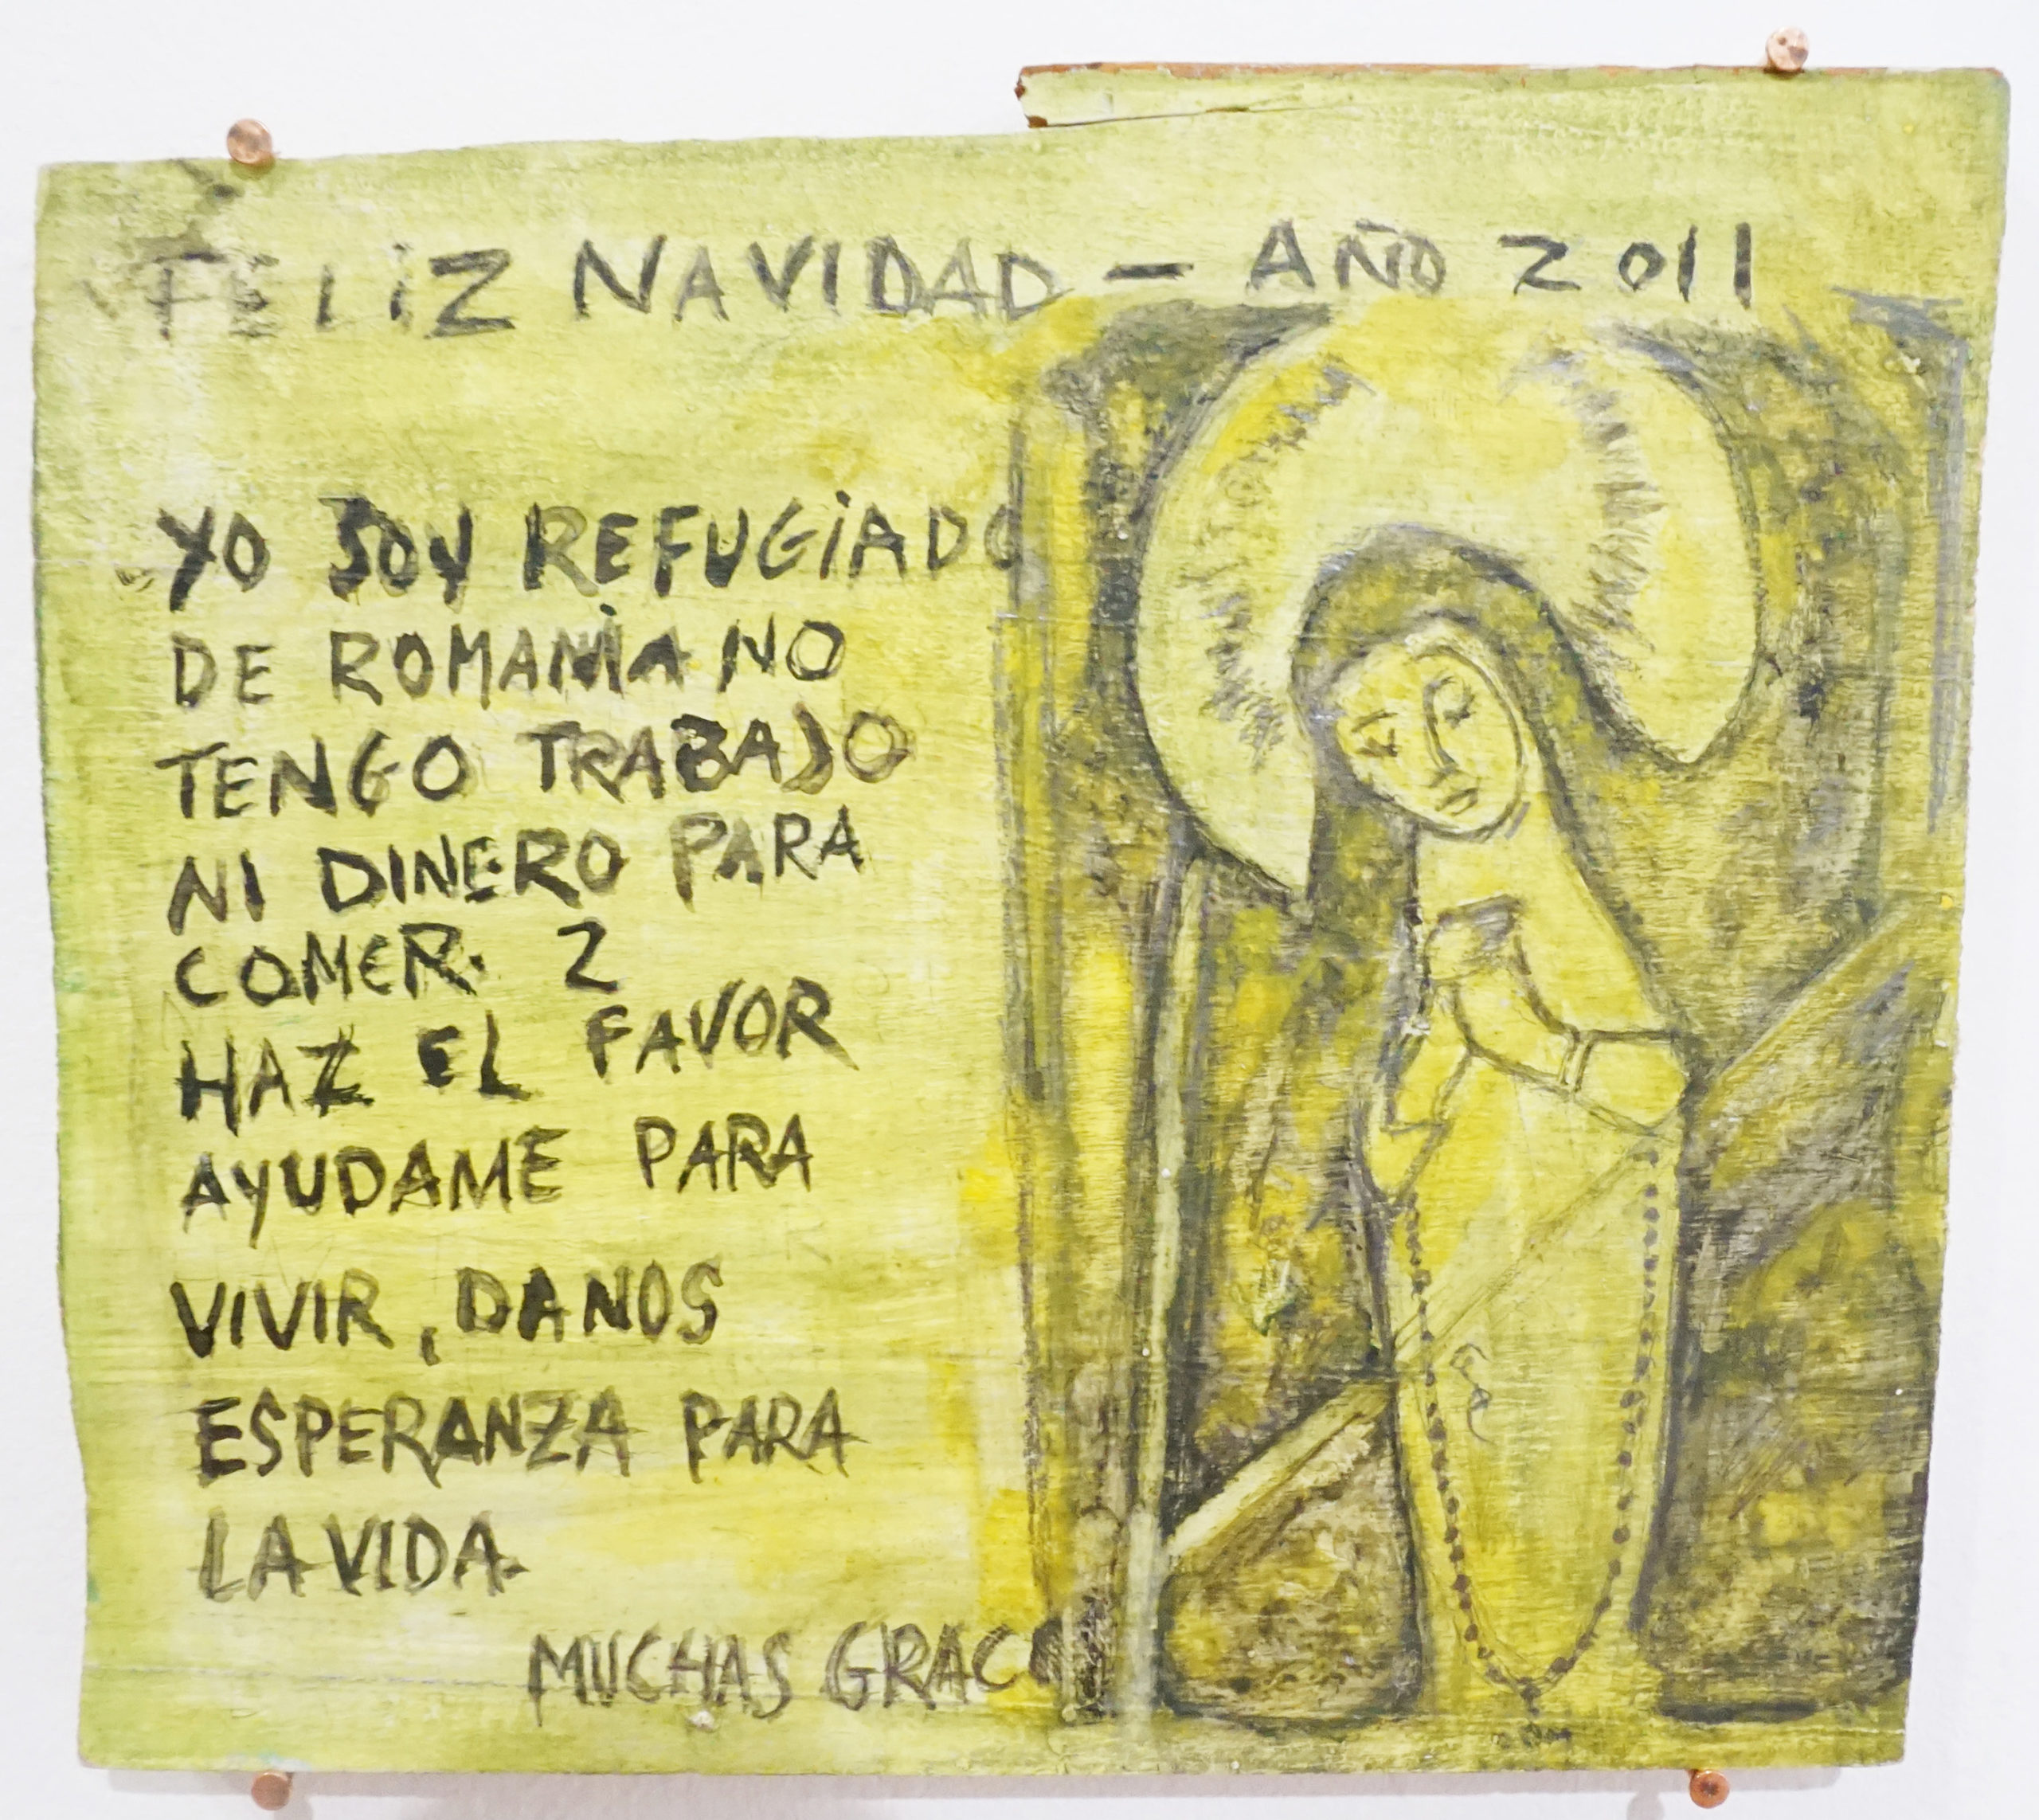 FELiZ NAVIDAD - AÑO 2011
YO SOY REFUGiADO
DE ROMANiA NO
TENGO TRABAJO
NI DINERO PARA
COMER. 2
HAZ EL FAVOR
AYUDAME PARA
VIVIR, DANOS
ESPERANZA PARA
LA VIDA.
MUCHAS